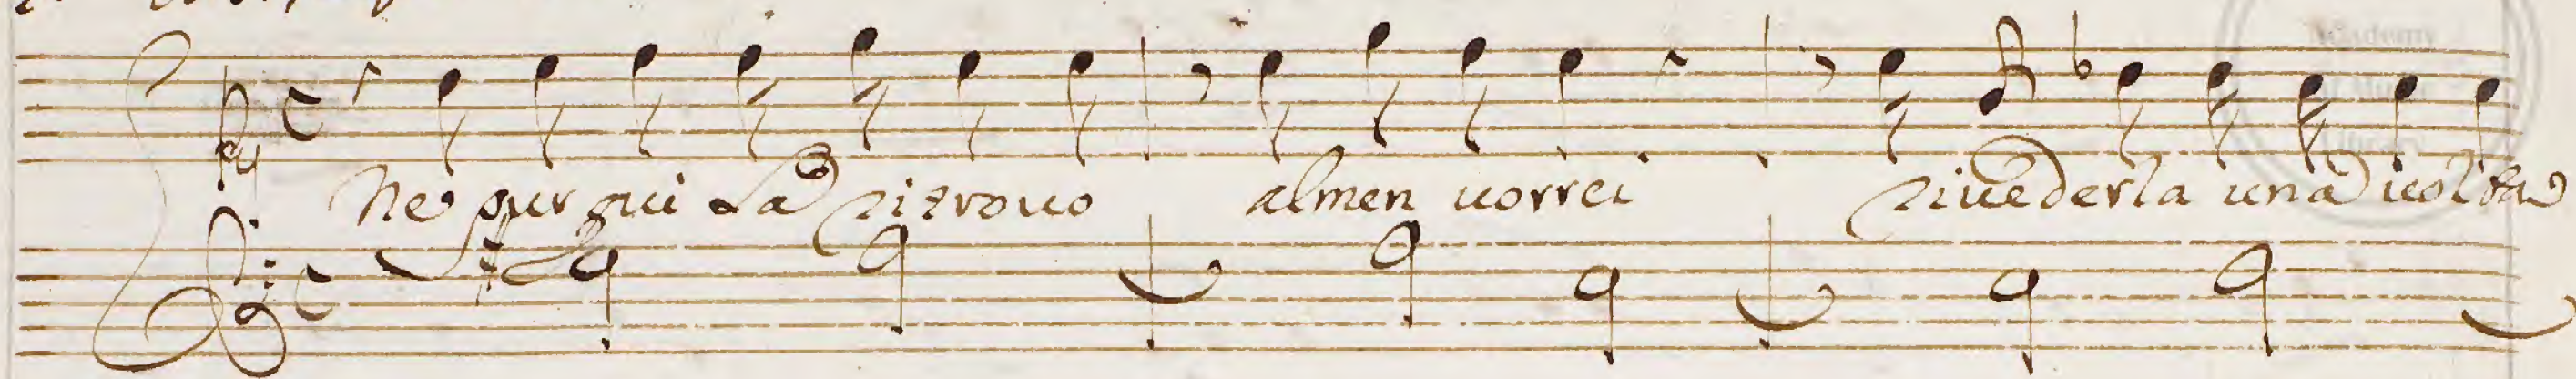 Ne pur qui La ritrouo almen uorrei riuederla una uolta